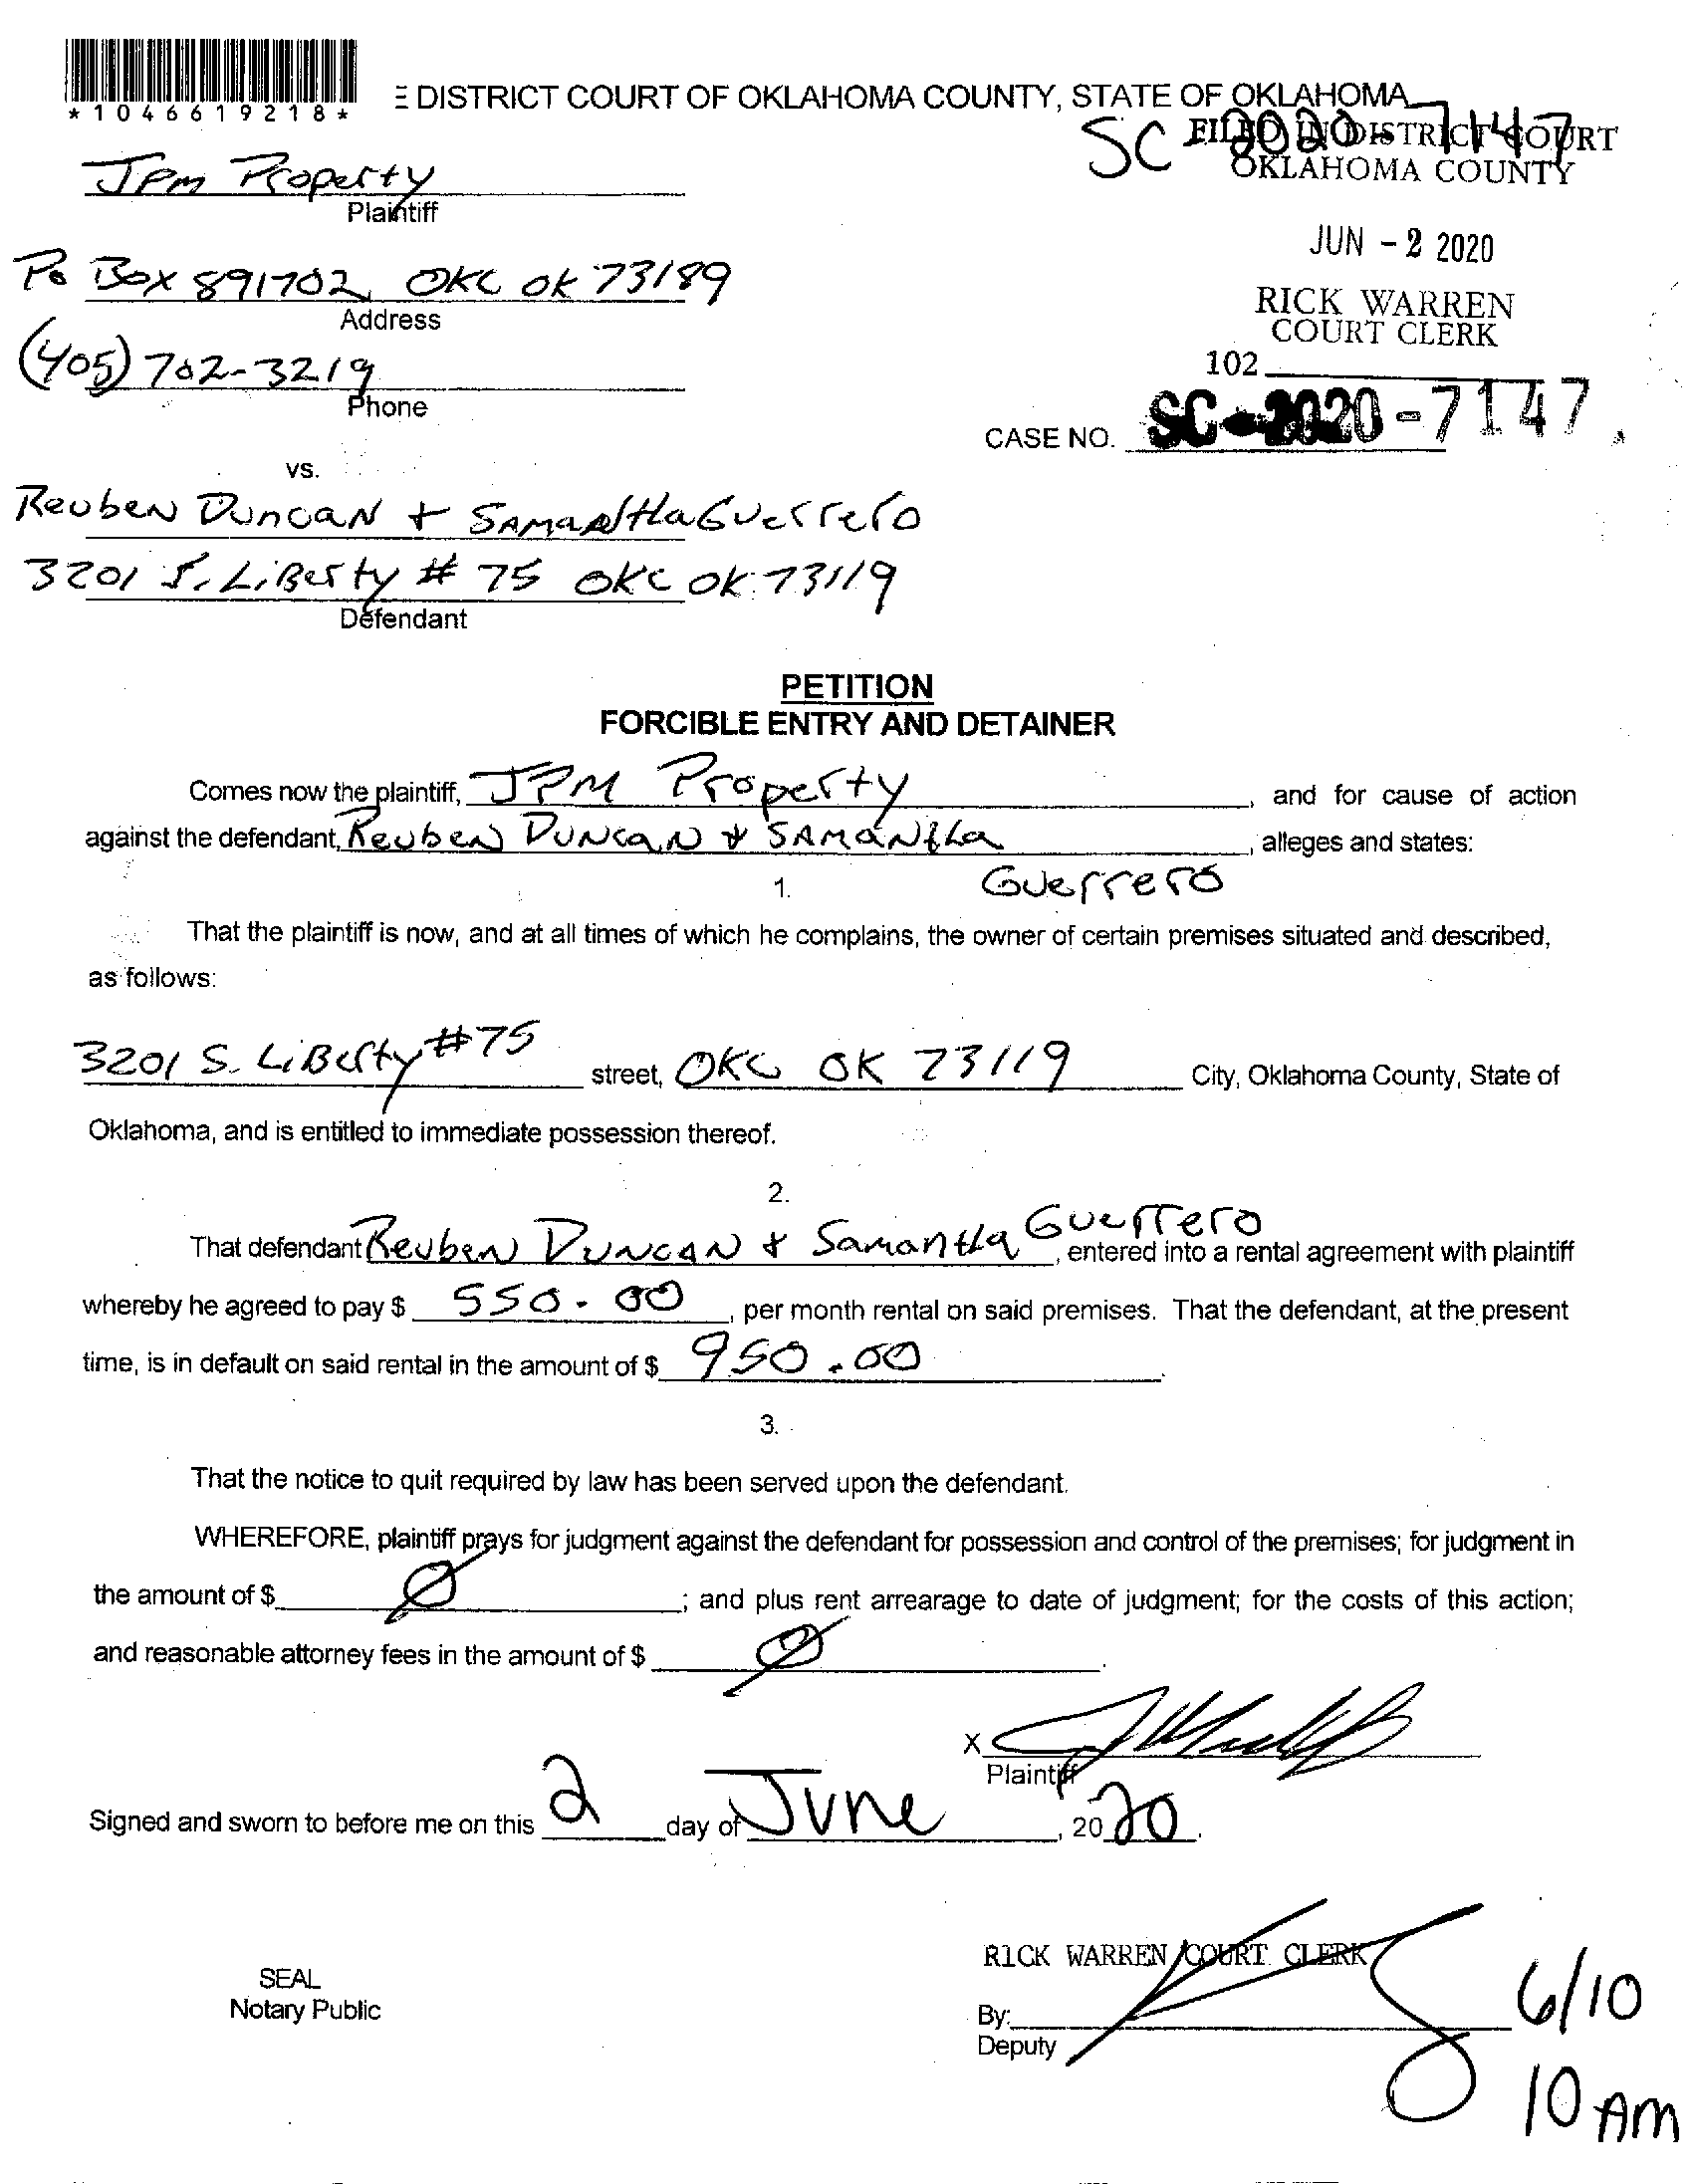 *1046619218*
E DISTRICT COURT OF OKLAHOMA COUNTY, STATE OF OKLAHOMA
SC 2020-7147
FILED IN DISTRICT COURT
OKLAHOMA COUNTY
JPM Property
Plaintiff
JUN - 2 2020
Po Box 891702, OKC OK 73189
Address
RICK WARREN
COURT CLERK
(405) 702-3219
Phone
102
CASE NO. SC-2020-7147
vs.
Reuben Duncan + Samantha Guerrero
3201 S. Liberty # 75 OKC OK 73119
Defendant
PETITION
FORCIBLE ENTRY AND DETAINER
Comes now the plaintiff, JPM Property, and for cause of action
against the defendant, Reuben Duncan & Samantha, alleges and states:
Guerrero
1.
That the plaintiff is now, and at all times of which he complains, the owner of certain premises situated and described,
as follows:
3201 S. Liberty #75 street, OKC OK 73119 City, Oklahoma County, State of
Oklahoma, and is entitled to immediate possession thereof.
2.
That defendant Reuben Duncan & Samantha Guerrero, entered into a rental agreement with plaintiff
whereby he agreed to pay $ 550.00, per month rental on said premises. That the defendant, at the present
time, is in default on said rental in the amount of $ 950.00.
3.
That the notice to quit required by law has been served upon the defendant.
WHEREFORE, plaintiff prays for judgment against the defendant for possession and control of the premises; for judgment in
the amount of $ Ø; and plus rent arrearage to date of judgment; for the costs of this action;
and reasonable attorney fees in the amount of $ Ø.
X
Plaintiff
Signed and sworn to before me on this 2 day of June, 2020.
RICK WARREN COURT CLERK
SEAL
Notary Public
By:
Deputy
6/10
10 AM